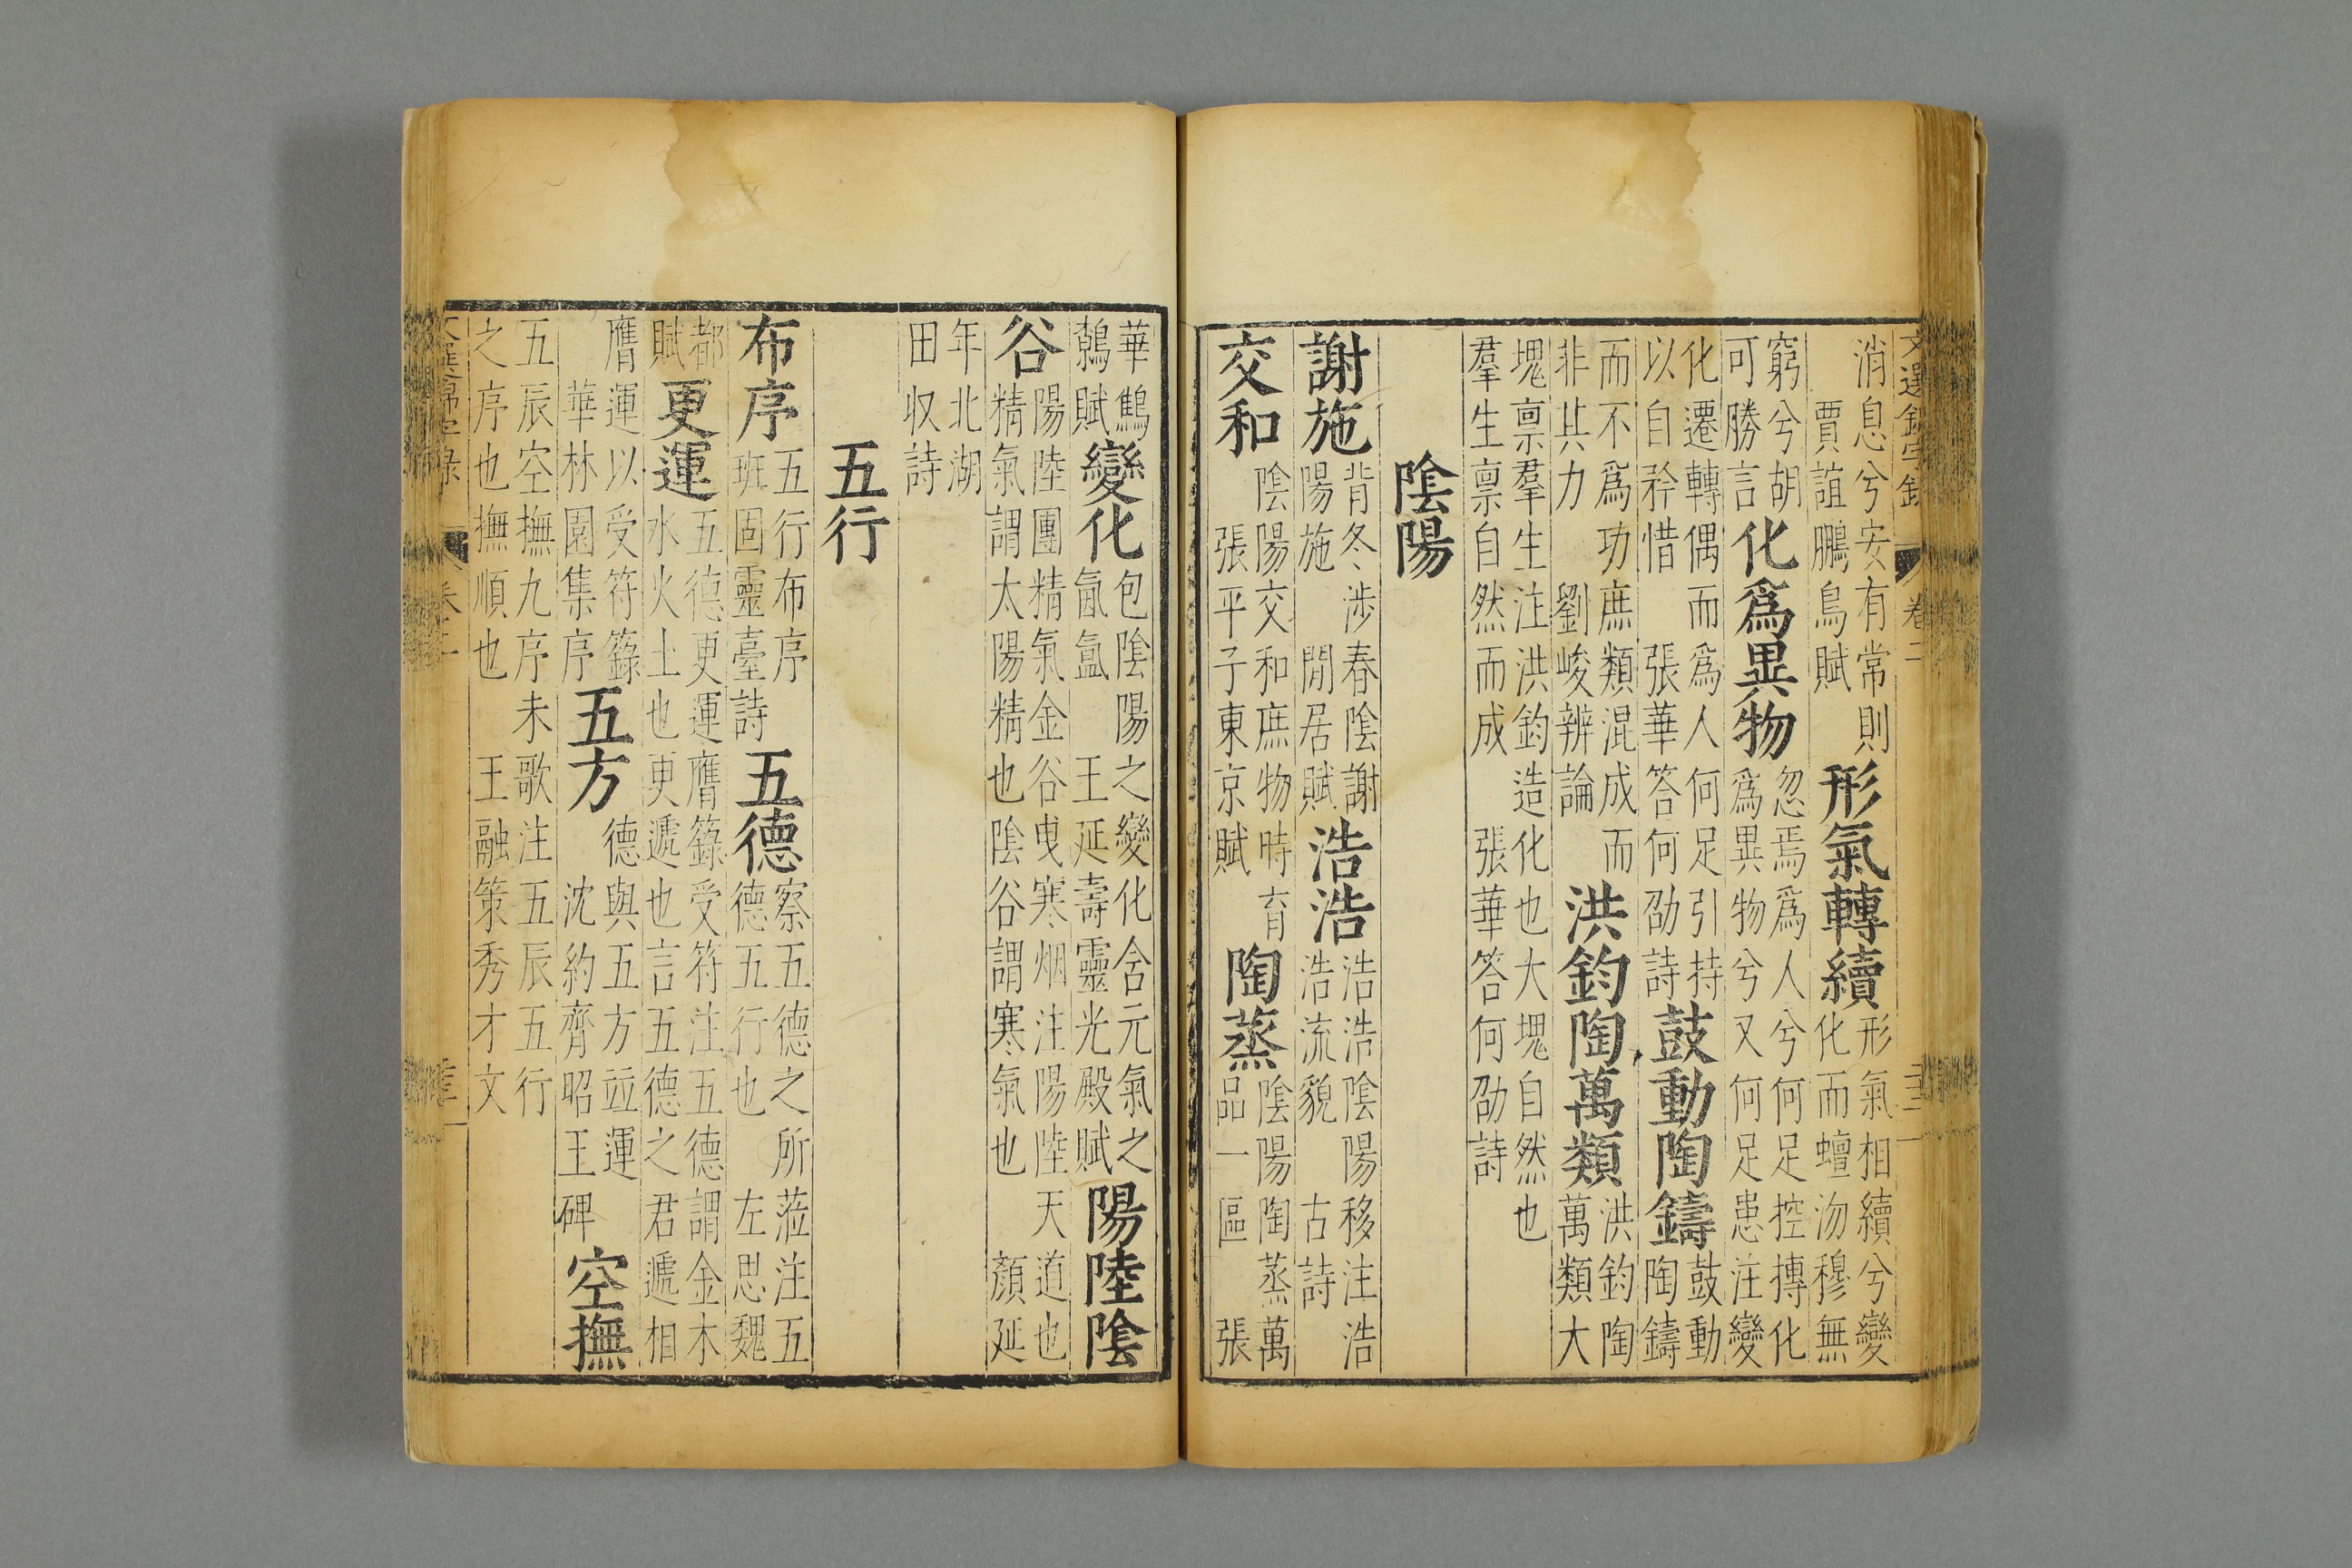 文選錦字錄 卷二
消息兮安有常則 賈誼鵩鳥賦 形氣轉續 形氣相續兮變化而蟺沕穆無
窮兮胡可勝言 化爲異物 忽焉爲人兮何足控摶化爲異物兮又何足患注變
化遷轉偶而爲人何足引持以自矜惜 張華答何劭詩 鼓動陶鑄 鼓動陶鑄
而不爲功庶類混成而非其力 劉峻辨論 洪鈞陶萬類 洪鈞陶萬類大
塊禀羣生注洪鈞造化也大塊自然也羣生禀自然而成 張華答何劭詩
陰陽
謝施 背冬涉春陰謝陽施 閒居賦 浩浩 浩浩陰陽移注浩浩流貌 古詩
交和 陰陽交和庶物時育 張平子東京賦 陶蒸 陰陽陶蒸萬品一區 張
華鷦鷯賦 變化 包陰陽之變化含元氣之氤氳 王延壽靈光殿賦 陽陸陰
谷 陽陸團精氣金谷曳寒烟注陽陸天道也精氣謂太陽精也陰谷謂寒氣也 顏延
年北湖田収詩
五行
布序 五行布序 班固靈臺詩 五德 察五德之所蒞注五德五行也 左思魏
都賦 更運 五德更運膺籙受符注五德謂金木水火土也更遞也言五德之君遞相
膺運以受符籙 華林園集序 五方 德與五方竝運 沈約齊昭王碑 空撫
五辰空撫九序未歌注五辰五行之序也撫順也 王融策秀才文